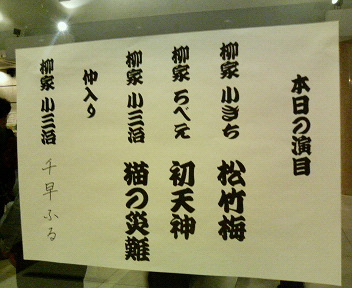 本日の演目
柳家 小きち 松竹梅
柳家 ろべえ 初天神
柳家 小三治 猫の災難
仲入り
柳家 小三治 千早ふる